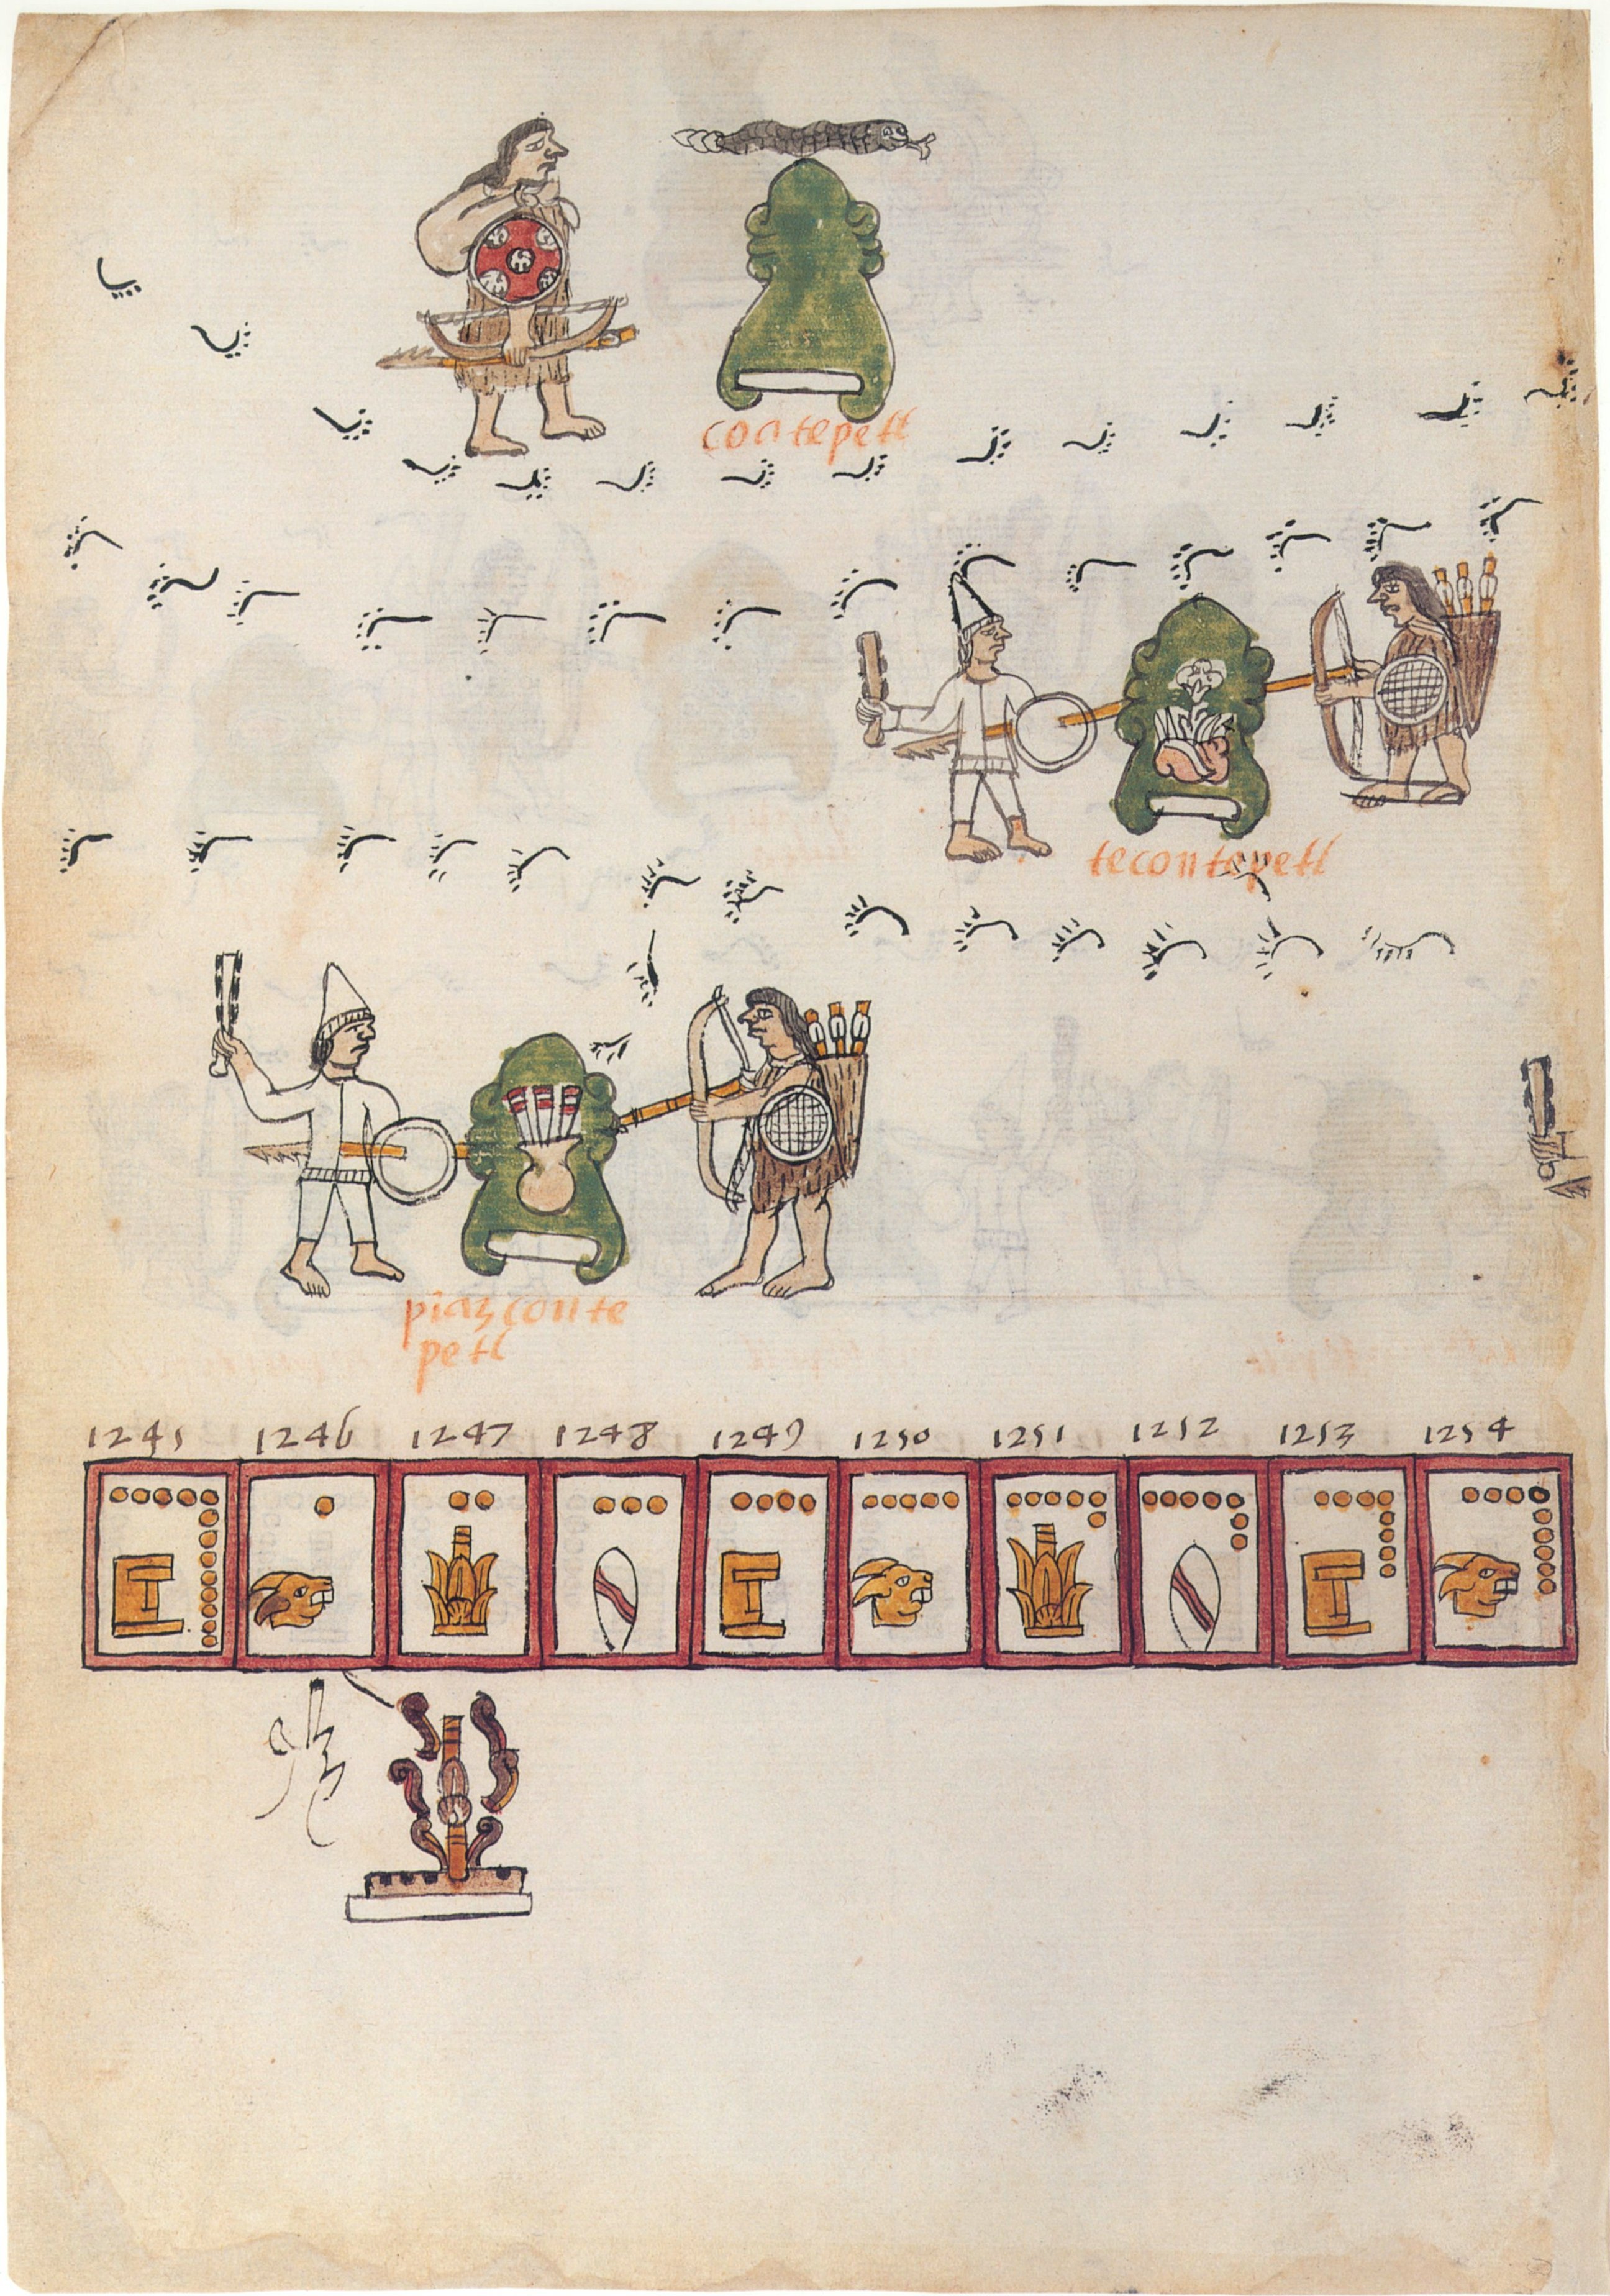 coatepetl
tecontepetl
piazconte
petl
1245 1246 1247 1248 1249 1250 1251 1252 1253 1254